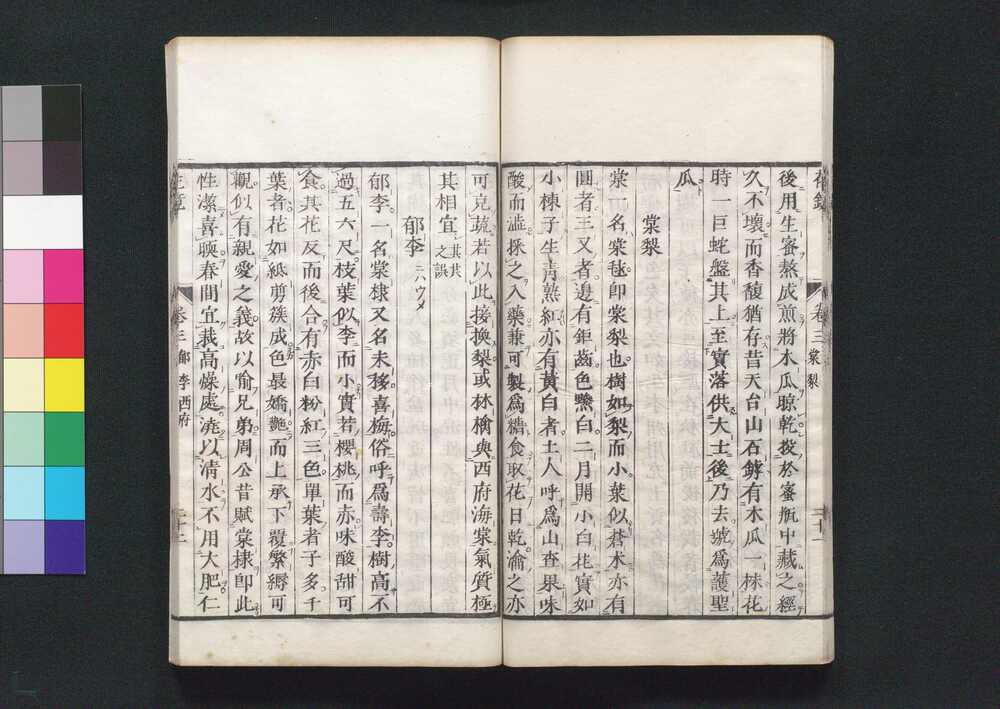 後用生蜜熬成煎將木瓜晾乾投於蜜瓶中藏之經
久不壞而香馥猶存昔天台山石罅有木瓜一株花
時一巨蛇盤其上至實落供大士後乃去號爲護聖
瓜
棠梨
棠一名棠毬卽棠梨也樹如梨而小葉似蒼朮亦有
圓者三叉者邊有鉅齒色黲白二月開小白花實如
小楝子生靑熟紅亦有黃白者土人呼爲山查果味
酸而澁採之入藥兼可製爲糖食取花日乾瀹之亦
卷三 棠梨
二十一
可充蔬若以此接換梨或林檎與西府海棠氣質極
其相宜其共之誤
郁李ニハウメ
郁李一名棠棣又名夫栘喜梅俗呼爲壽李樹高不
過五六尺枝葉似李而小實若櫻桃而赤味酸甜可
食其花反而後合有赤白粉紅三色單葉者子多千
葉者花如紙剪簇成色最嬌艶而上承下覆繁縟可
觀似有親愛之義故以喻兄弟周公昔賦棠棣卽此
性潔喜暎春間宜栽高燥處澆以淸水不用大肥仁
卷三 郁李 西府
二十二